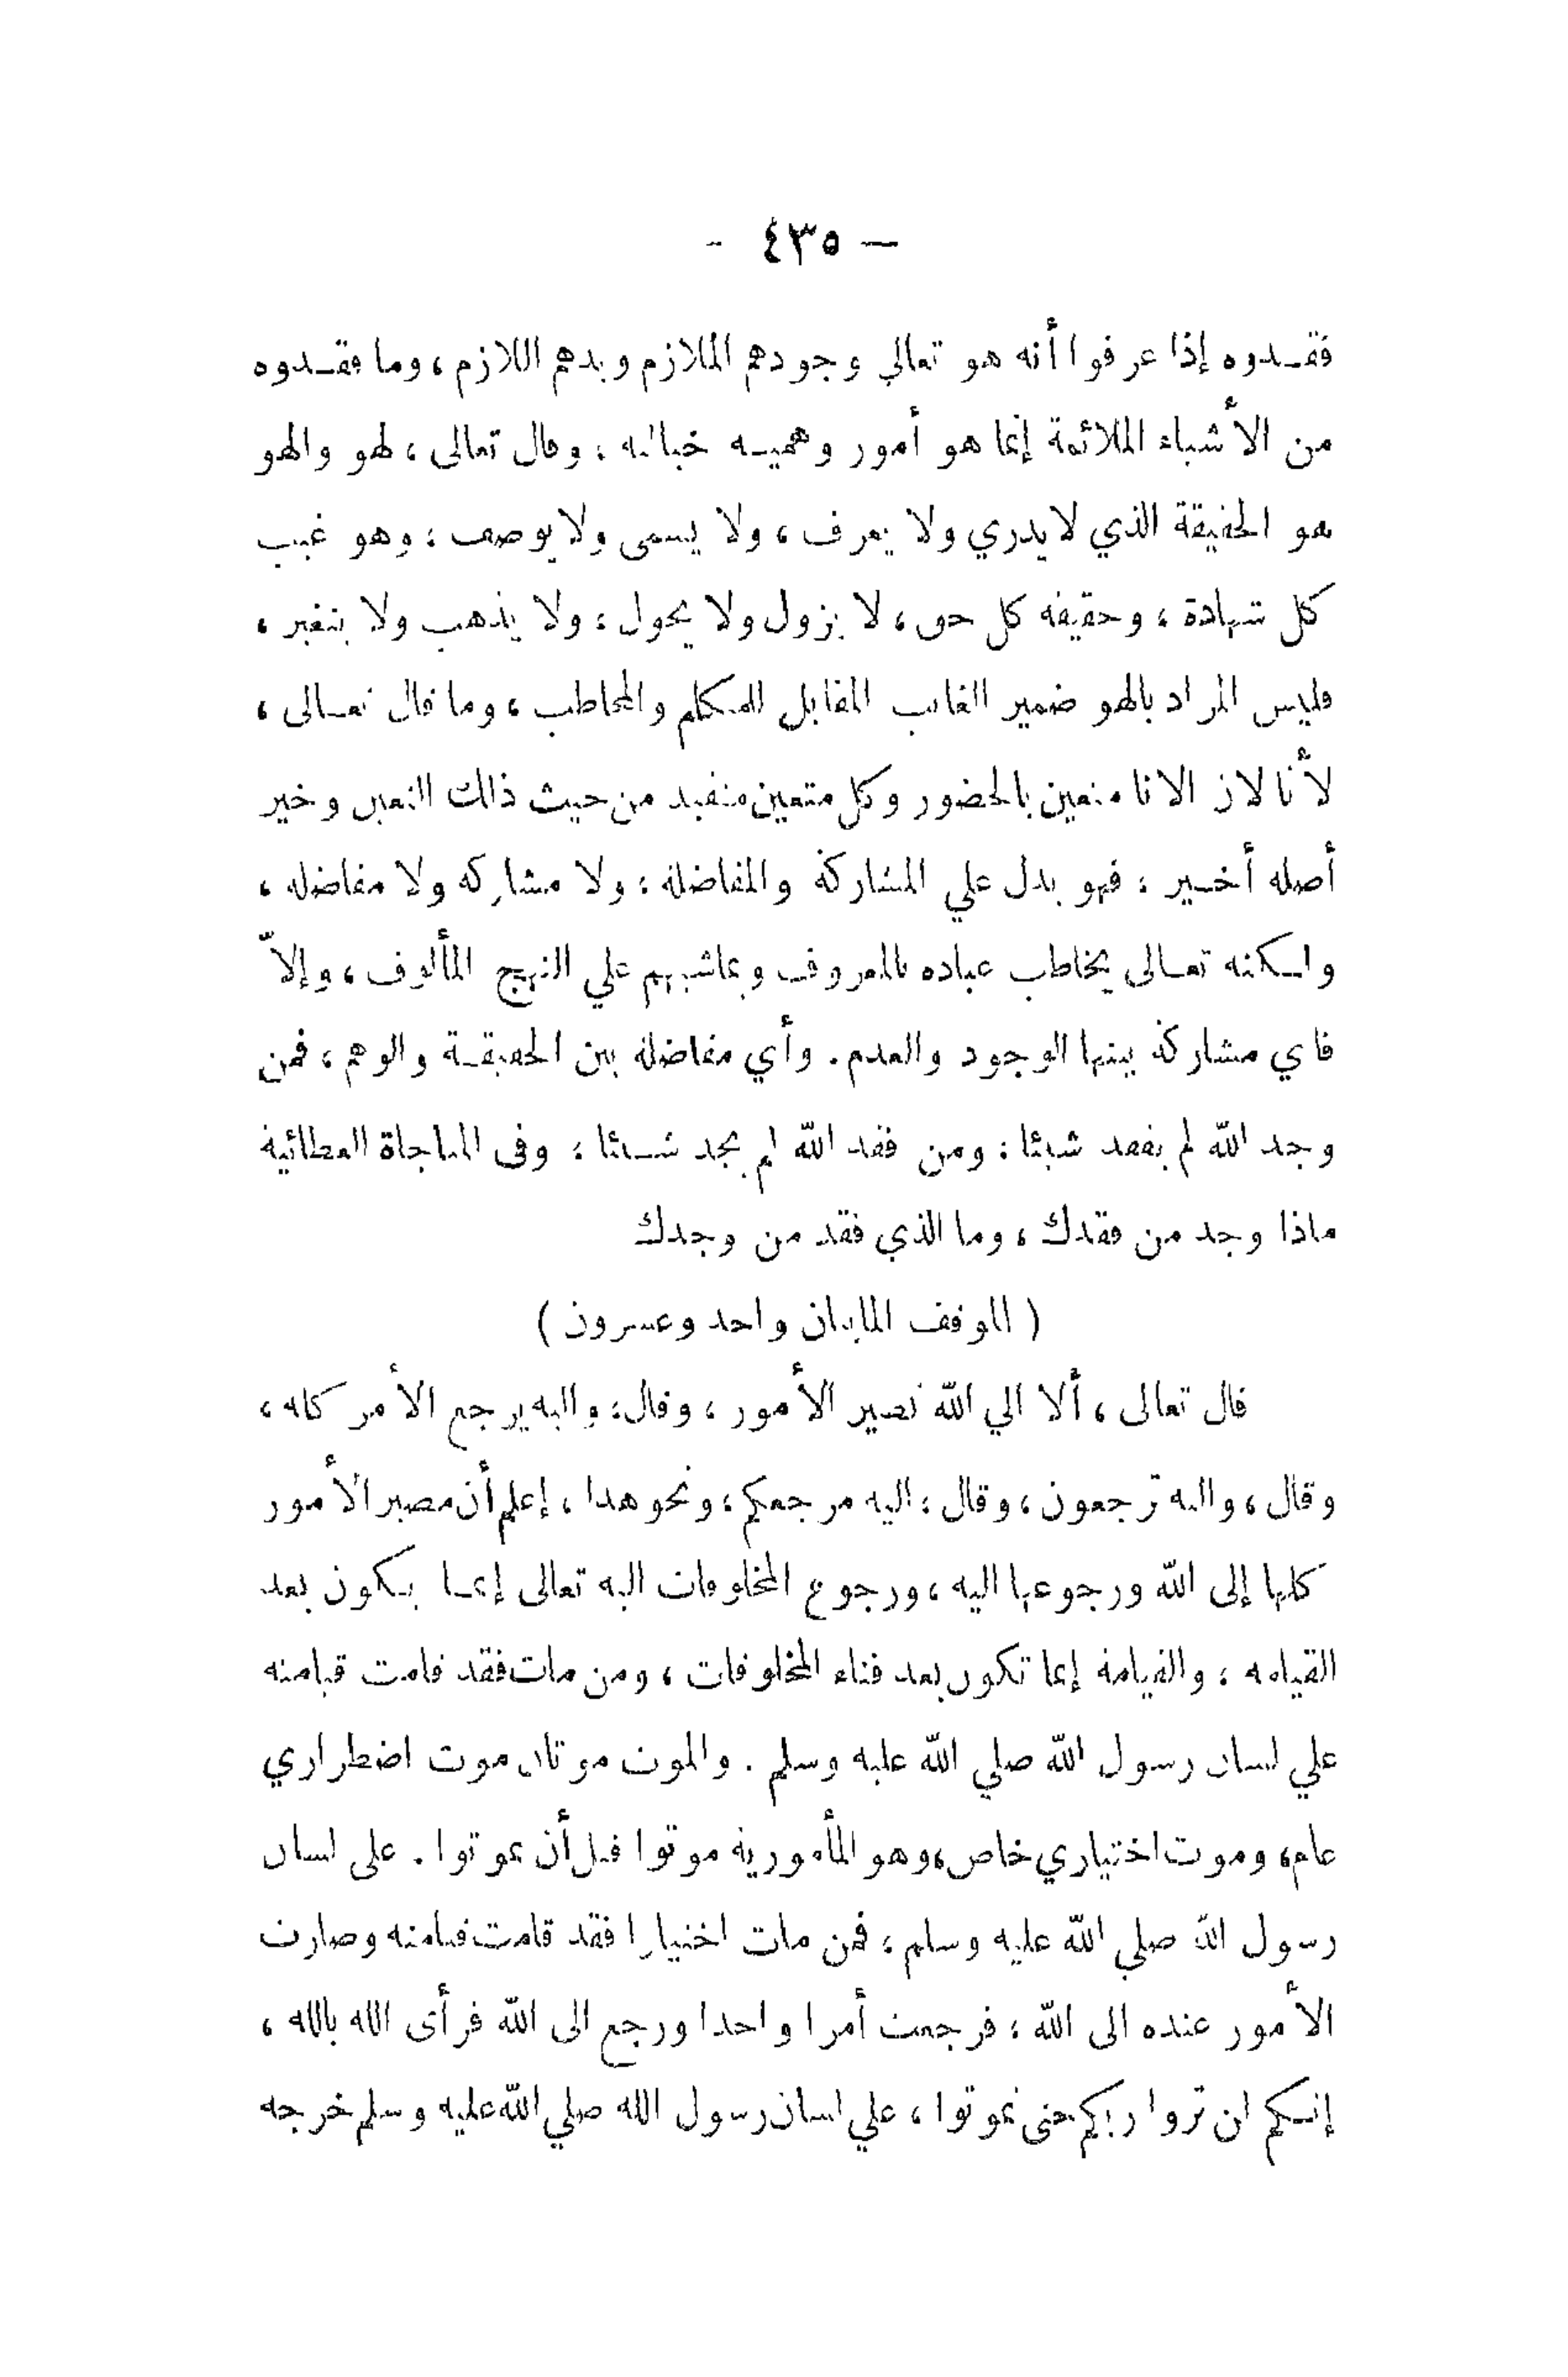 — ٤٣٥ -
فقدوه إذا عرفوا أنه هو تعالي وجودهم الملازم وبدهم اللازم، وما فقدوه
من الأشياء الملائمة إنما هو أمور وهمية خيالية، وقال تعالى، لهو والهو
هو الحقيقة الذي لا يدري ولا يعرف، ولا يسمى ولا يوصف، وهو غيب
كل شهادة، وحقيقة كل حق، لا يزول ولا يحول، ولا يذهب ولا يتغير،
وليس المراد بالهو ضمير الغائب المقابل للمتكلم والمخاطب، وما قال تعالى،
لأنا لان الانا متعين بالحضور وكل متعين متقيد من حيث ذلك التعين وخير
أصله أخير، فهو يدل علي المشاركة والمفاضلة، ولا مشاركة ولا مفاضلة،
ولكنه تعالى يخاطب عباده بالمعروف ويماشيهم علي النهج المألوف، وإلاّ
فاي مشاركة بينها الوجود والعدم. وأي مفاضلة بين الحقيقة والوهم، فمن
وجد الله لم يفقد شيئا، ومن فقد الله لم يجد شيئا، وفى المناجاة العطائية
ماذا وجد من فقدك، وما الذي فقد من وجدك
( الموقف المايتان واحد وعشرون )
قال تعالى، ألا الي الله تصير الأمور، وقال، واليه يرجع الأمر كله،
وقال، واليه ترجعون، وقال، اليه مرجعكم، ونحو هذا، إعلم أن مصير الأمور
كلها إلى الله ورجوعها اليه، ورجوع المخلوقات اليه تعالى إنما يكون بعد
القيامة، والقيامة إنما تكون بعد فناء المخلوقات، ومن مات فقد قامت قيامته
علي لسان رسول الله صلي الله عليه وسلم. والموت موتان موت اضطراري
عام، وموت اختياري خاص، وهو المأمور به موتوا قبل أن تموتوا. على لسان
رسول الله صلي الله عليه وسلم، فمن مات اختيارا فقد قامت قيامته وصارت
الأمور عنده الى الله، فرجعت أمرا واحدا ورجع الى الله فرأى الله بالله،
إنكم لن تروا ربكم حتى تموتوا، علي لسان رسول الله صلي الله عليه وسلم خرجه